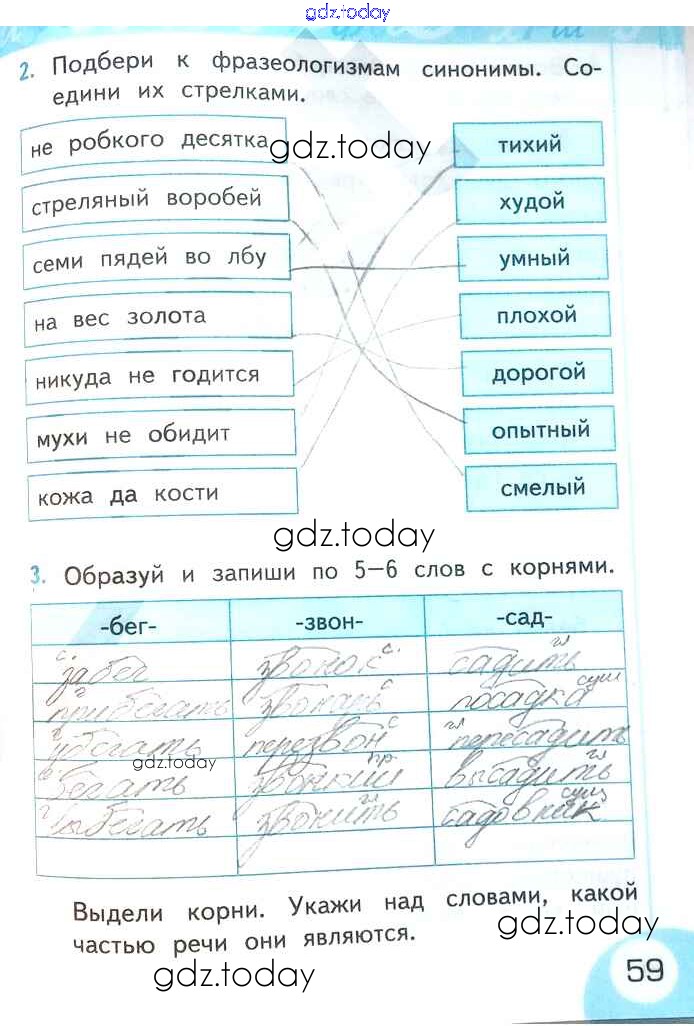 gdz.today
2. Подбери к фразеологизмам синонимы. Со-
едини их стрелками.
не робкого десятка
gdz.today
тихий
стреляный воробей
худой
семи пядей во лбу
умный
на вес золота
плохой
никуда не годится
дорогой
мухи не обидит
опытный
кожа да кости
смелый
gdz.today
3. Образуй и запиши по 5–6 слов с корнями.
-бег-
-звон-
-сад-
забег
звонок
садить
прибегать
звонарь
посадка
убегать
перезвон
пересадить
бегать
звонкий
высадить
выбегать
звонить
садовник
gdz.today
Выдели корни. Укажи над словами, какой
частью речи они являются.
gdz.today
gdz.today
59